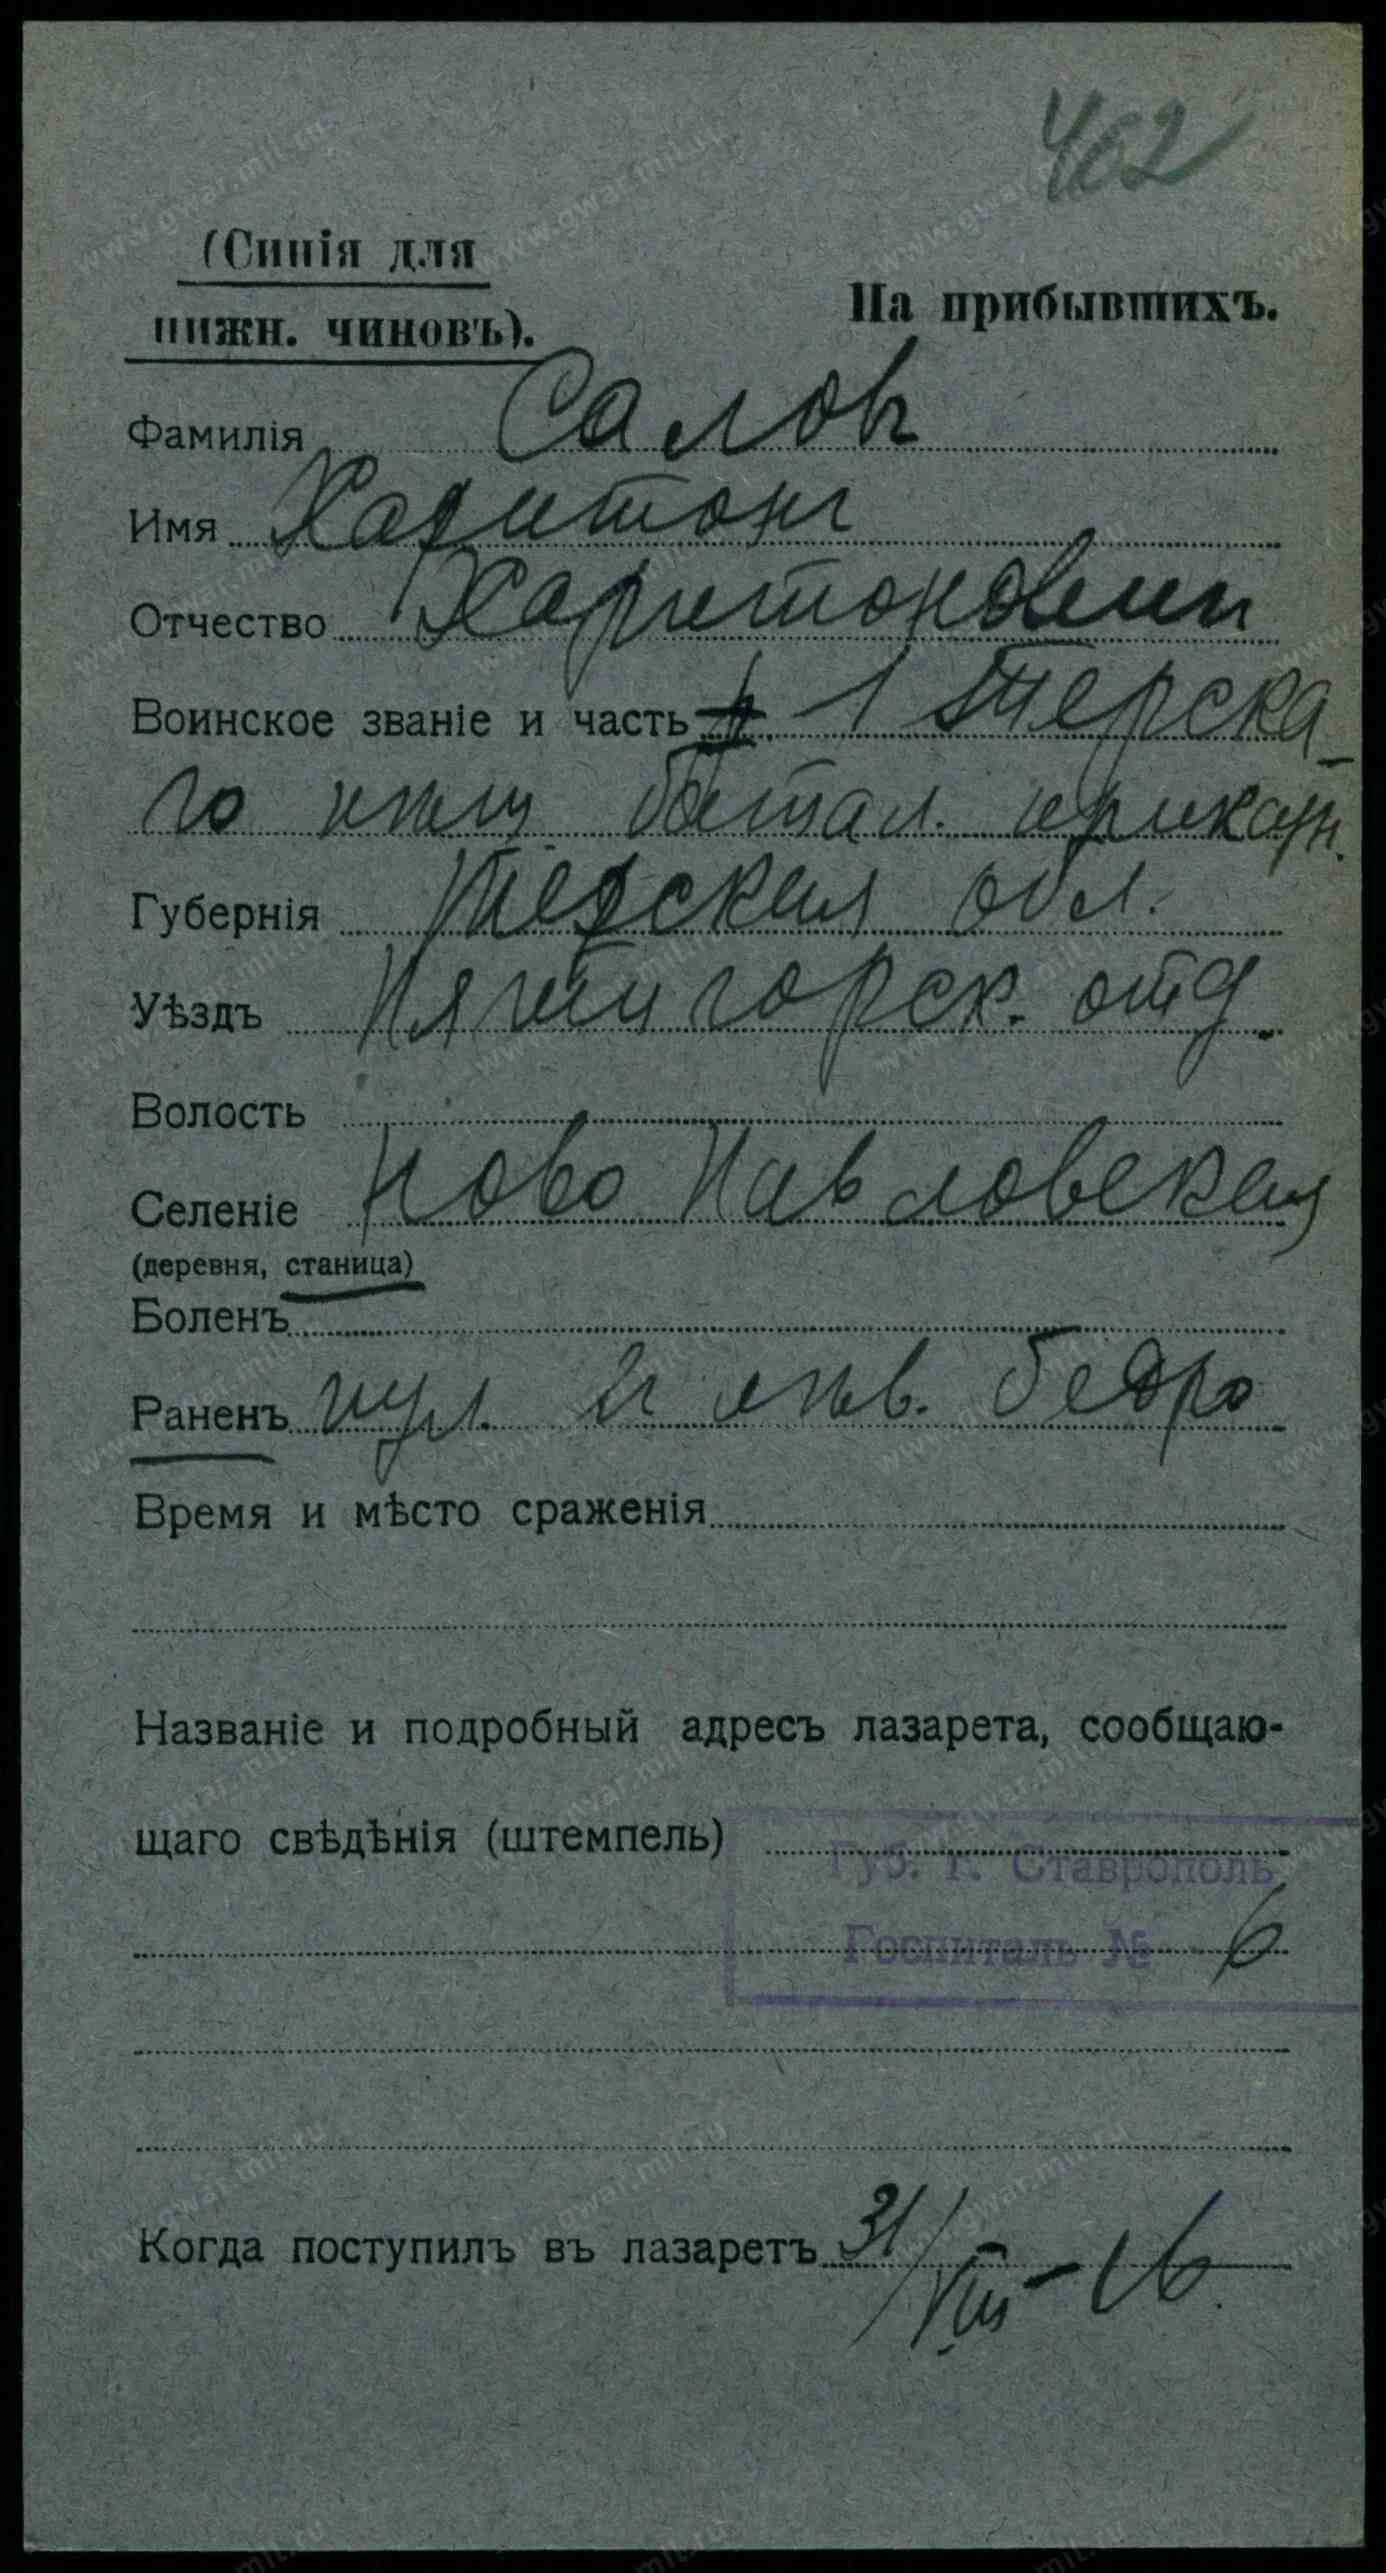 462
(Синія для
нижн. чиновъ).
На прибывшихъ.
Фамилія Саловъ
Имя Харитонъ
Отчество Харитоновичъ
Воинское званіе и часть 1 Терска-
го батал. приказн.
Губернія Терская обл.
Уѣздъ Пятигорск. отд.
Волость
Селеніе Ново Павловская
(деревня, станица)
Боленъ
Раненъ пул. лѣв. бедро
Время и мѣсто сраженія
Названіе и подробный адресъ лазарета, сообщаю-
щаго свѣдѣнія (штемпель)
Губ. г. Ставрополь
Госпиталь № 6
Когда поступилъ въ лазаретъ 31/VIII-16